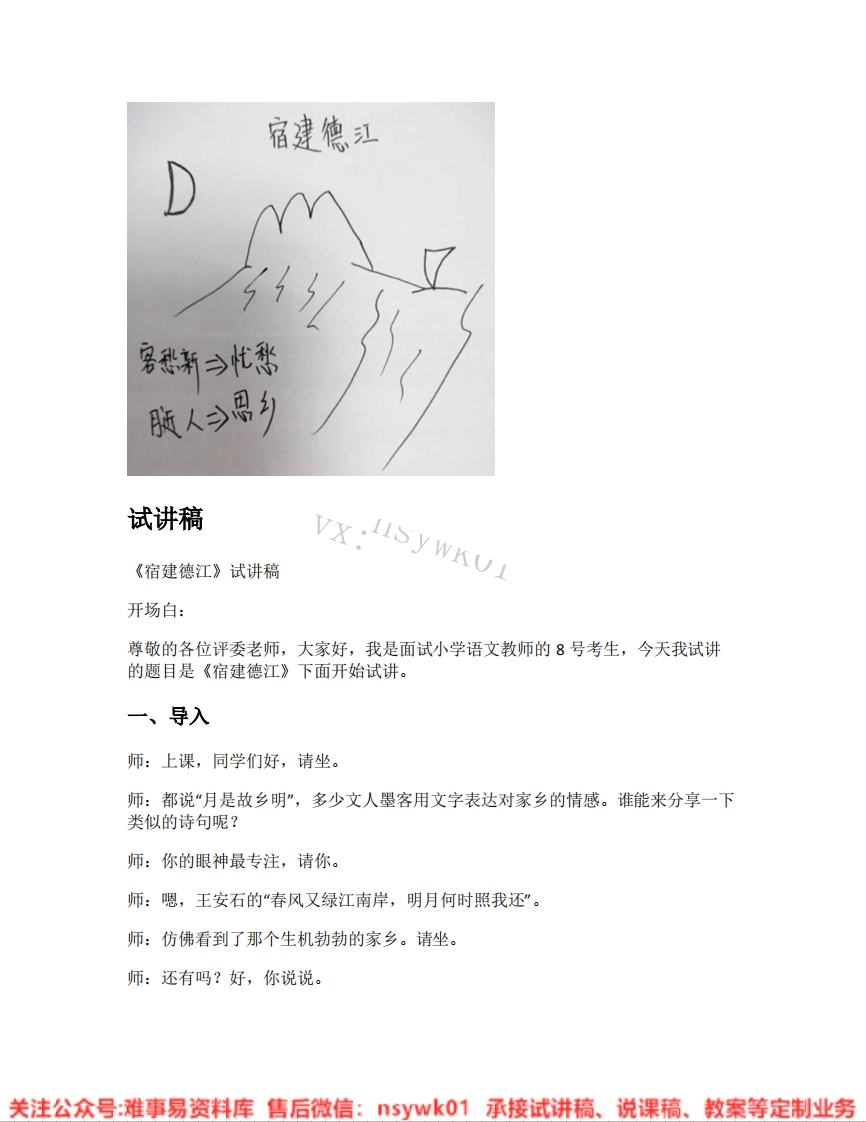 宿建德江
客愁新⇒忧愁
月近人⇒思乡
试讲稿
VX:nsywk01
《宿建德江》试讲稿
开场白：
尊敬的各位评委老师，大家好，我是面试小学语文教师的 8 号考生，今天我试讲
的题目是《宿建德江》下面开始试讲。
一、导入
师：上课，同学们好，请坐。
师：都说“月是故乡明”，多少文人墨客用文字表达对家乡的情感。谁能来分享一下
类似的诗句呢？
师：你的眼神最专注，请你。
师：嗯，王安石的“春风又绿江南岸，明月何时照我还”。
师：仿佛看到了那个生机勃勃的家乡。请坐。
师：还有吗？好，你说说。
关注公众号:难事易资料库 售后微信：nsywk01 承接试讲稿、说课稿、教案等定制业务